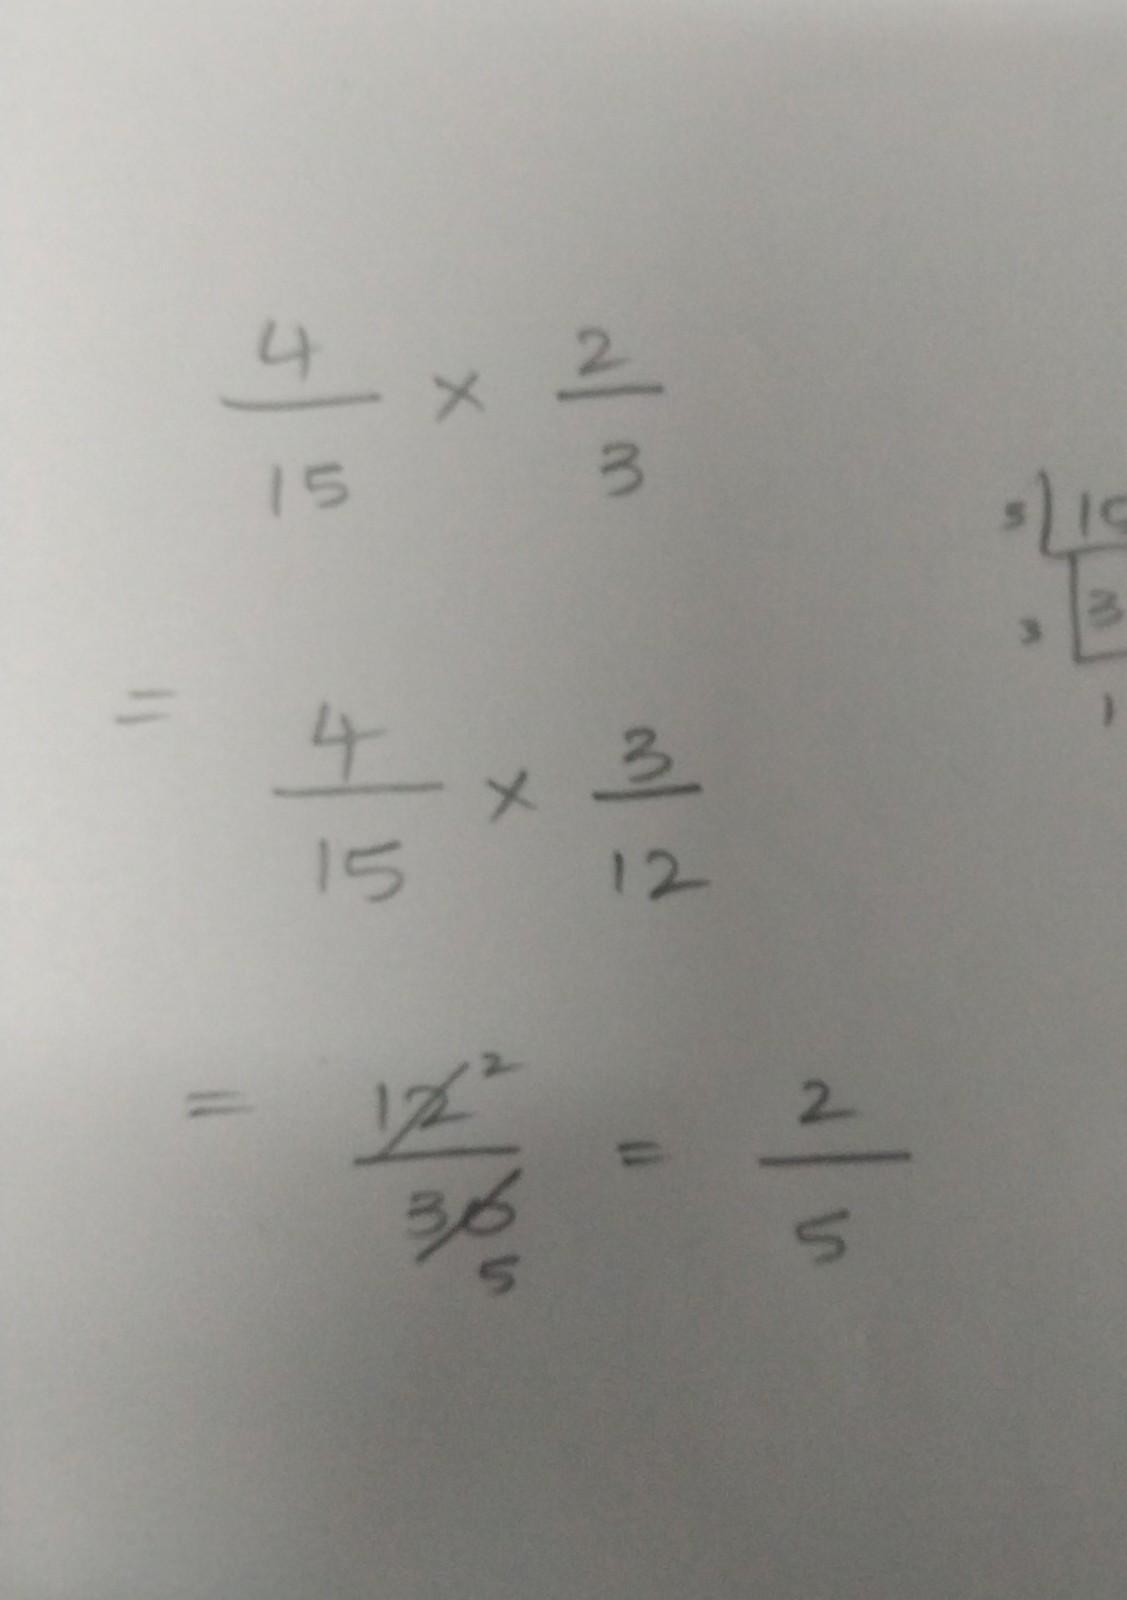 4/15 × 2/3
= 4/15 × 3/12
= 12/30 2 5 = 2/5
5
3 3
1